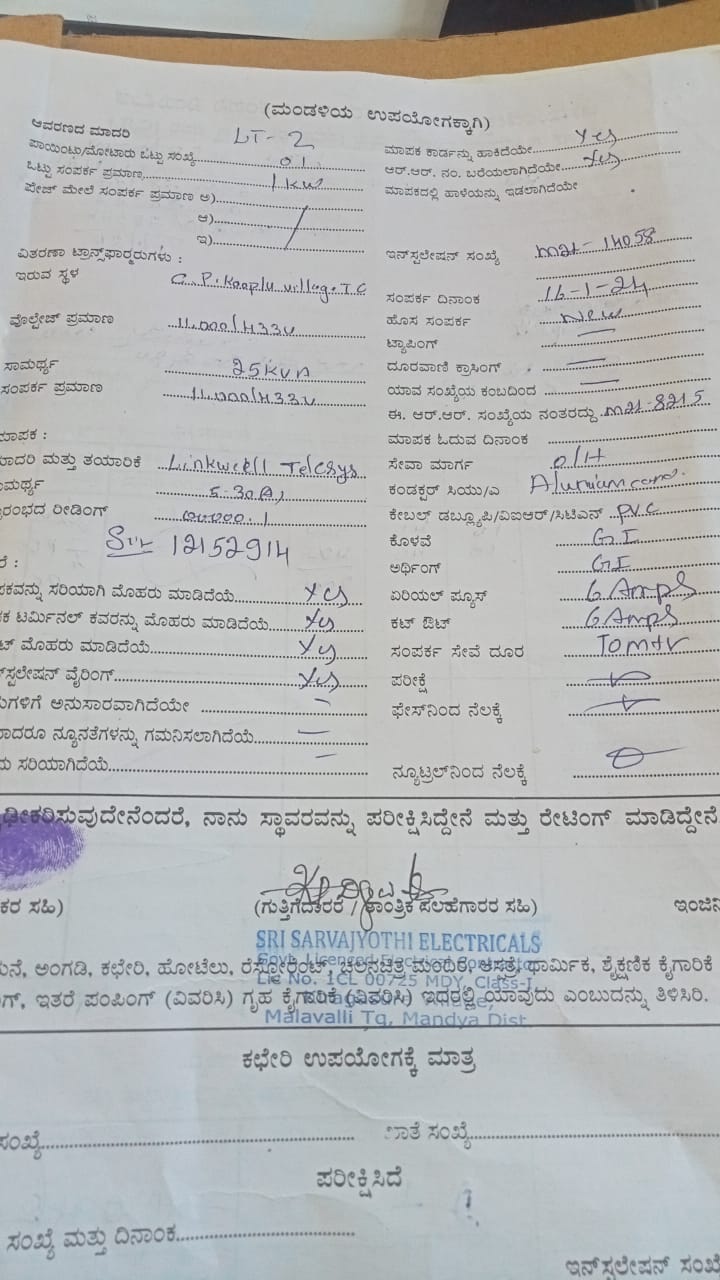 (ಮಂಡಳಿಯ ಉಪಯೋಗಕ್ಕಾಗಿ)
ಆವರಣದ ಮಾದರಿ LT-2
ಪಾಯಿಂಟು/ಮೋಟಾರು ಒಟ್ಟು ಸಂಖ್ಯೆ 01
ಒಟ್ಟು ಸಂಪರ್ಕ ಪ್ರಮಾಣ 1 KW
ಫೇಜ್ ಮೇಲೆ ಸಂಪರ್ಕ ಪ್ರಮಾಣ ಅ)
ಆ)
ಇ)
ವಿತರಣಾ ಟ್ರಾನ್ಸ್‌ಫಾರ್ಮರುಗಳು :
ಇರುವ ಸ್ಥಳ G.P. Kooplu village. T.C
ವೋಲ್ಟೇಜ್ ಪ್ರಮಾಣ 11.000/433V
ಸಾಮರ್ಥ್ಯ 25KVA
ಸಂಪರ್ಕ ಪ್ರಮಾಣ 11.000/433V
ಮಾಪಕ :
ಮಾದರಿ ಮತ್ತು ತಯಾರಿಕೆ Linkwell Telesys
ಮರ್ಥ್ಯ 5-30(A)
ರಂಭದ ರೀಡಿಂಗ್
12152914
ರೆ :
ಪಕವನ್ನು ಸರಿಯಾಗಿ ಮೊಹರು ಮಾಡಿದೆಯೆ Yes
ಕ ಟರ್ಮಿನಲ್ ಕವರನ್ನು ಮೊಹರು ಮಾಡಿದೆಯೆ Yes
ಟ್ ಮೊಹರು ಮಾಡಿದೆಯೆ Yes
ಸ್ಟಲೇಷನ್ ವೈರಿಂಗ್ Yes
ಗಳಿಗೆ ಅನುಸಾರವಾಗಿದೆಯೇ –
ಾದರೂ ನ್ಯೂನತೆಗಳನ್ನು ಗಮನಿಸಲಾಗಿದೆಯೆ –
ು ಸರಿಯಾಗಿದೆಯೆ –
ಮಾಪಕ ಕಾರ್ಡನ್ನು ಹಾಕಿದೆಯೇ Yes
ಆರ್.ಆರ್. ನಂ. ಬರೆಯಲಾಗಿದೆಯೇ Yes
ಮಾಪಕದಲ್ಲಿ ಹಾಳೆಯನ್ನು ಇಡಲಾಗಿದೆಯೇ
ಇನ್‌ಸ್ಟಲೇಷನ್ ಸಂಖ್ಯೆ M21-14058
ಸಂಪರ್ಕ ದಿನಾಂಕ 16-1-24
ಹೊಸ ಸಂಪರ್ಕ New
ಟ್ಯಾಪಿಂಗ್ –
ದೂರವಾಣಿ ಕ್ರಾಸಿಂಗ್ –
ಯಾವ ಸಂಖ್ಯೆಯ ಕಂಬದಿಂದ –
ಈ. ಆರ್.ಆರ್. ಸಂಖ್ಯೆಯ ನಂತರದ್ದು M21-8215
ಮಾಪಕ ಓದುವ ದಿನಾಂಕ
ಸೇವಾ ಮಾರ್ಗ O/H
ಕಂಡಕ್ಟರ್ ಸಿಯು/ಎ
ಕೇಬಲ್ ಡಬ್ಲ್ಯೂಪಿ/ವಿಐಆರ್/ಸಿಟಿಎಸ್ PVC
ಕೊಳವೆ GI
ಅರ್ಥಿಂಗ್ GI
ಏರಿಯಲ್ ಫ್ಯೂಸ್ 6 Amps
ಕಟ್ ಔಟ್ 6 Amps
ಸಂಪರ್ಕ ಸೇವೆ ದೂರ
ಪರೀಕ್ಷೆ
ಫೇಸ್‌ನಿಂದ ನೆಲಕ್ಕೆ
ನ್ಯೂಟ್ರಲ್‌ನಿಂದ ನೆಲಕ್ಕೆ
ಢೀಕರಿಸುವುದೇನೆಂದರೆ, ನಾನು ಸ್ಥಾವರವನ್ನು ಪರೀಕ್ಷಿಸಿದ್ದೇನೆ ಮತ್ತು ರೇಟಿಂಗ್ ಮಾಡಿದ್ದೇನೆ
ಕರ ಸಹಿ) (ಗುತ್ತಿಗೆದಾರರ / ತಾಂತ್ರಿಕ ಸಲಹೆಗಾರರ ಸಹಿ) ಇಂಜಿನಿ
SRI SARVAJYOTHI ELECTRICALS
Govt. Licensed Electrical
ನೆ, ಅಂಗಡಿ, ಕಛೇರಿ, ಹೋಟೆಲು, ರೆಸ್ಟೋರೆಂಟ್, ಚಲನಚಿತ್ರ ಮಂದಿರ, ಆಸತ್ರೆ, ಧಾರ್ಮಿಕ, ಶೈಕ್ಷಣಿಕ ಕೈಗಾರಿಕೆ
Lic No. 1CL 00725 MDY, Class-I
ಗ್, ಇತರೆ ಪಂಪಿಂಗ್ (ವಿವರಿಸಿ) ಗೃಹ ಕೈಗಾರಿಕೆ (ವಿವರಿಸಿ) ಇದರಲ್ಲಿ ಯಾವುದು ಎಂಬುದನ್ನು ತಿಳಿಸಿರಿ.
Malavalli Tq, Mandya Dist
ಕಛೇರಿ ಉಪಯೋಗಕ್ಕೆ ಮಾತ್ರ
ಸಂಖ್ಯೆ ಖಾತೆ ಸಂಖ್ಯೆ
ಪರೀಕ್ಷಿಸಿದೆ
ಸಂಖ್ಯೆ ಮತ್ತು ದಿನಾಂಕ
ಇನ್‌ಸ್ಟಲೇಷನ್ ಸಂಖ್ಯೆ